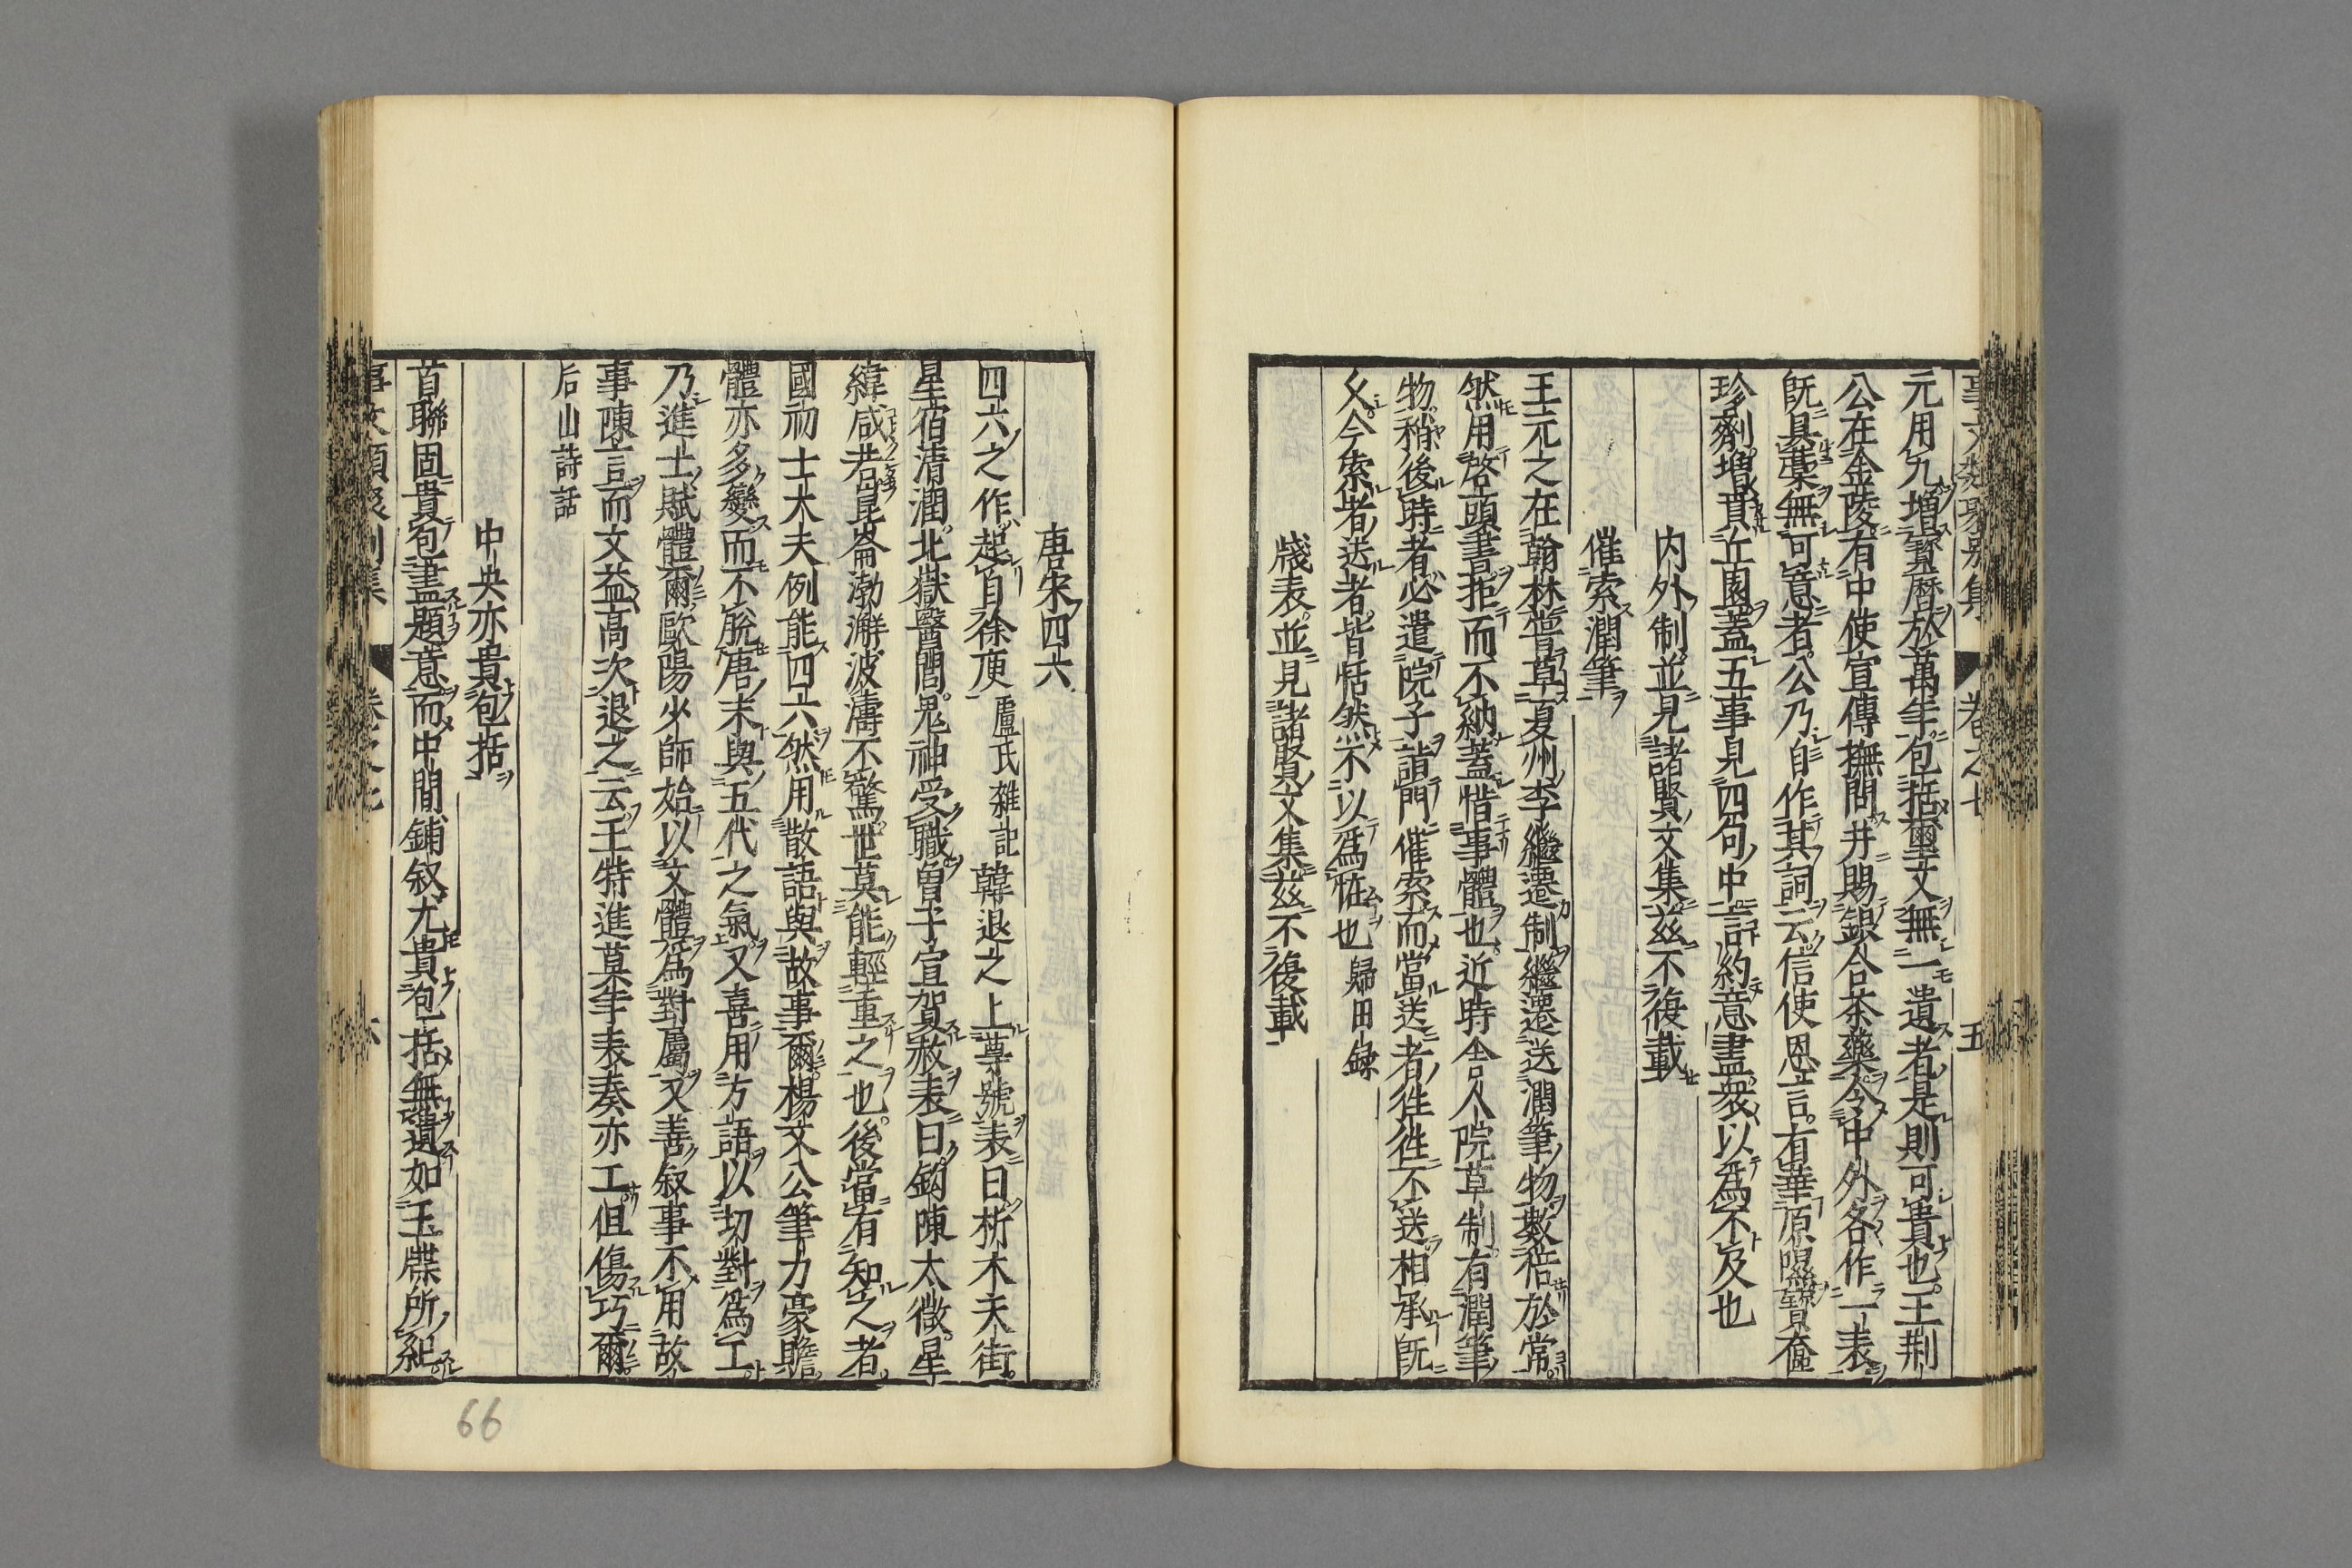 元用九増寳曆於萬年包括璽文無一遺者是則可貴也王荆
公在金陵有中使宣傳撫問并賜銀合茶藥令中外各作一表
旣具藁無可意者公乃自作其詞云信使恩言有華原隰寶奩
珍劑増賁丘園蓋五事見四句中言約意盡衆以爲不及也
内外制並見諸賢文集兹不復載
催索潤筆
王元之在翰林嘗草夏州李繼遷制繼遷送潤筆物數倍於常
然用啓頭書拒而不納蓋惜事體也近時舍人院草制有潤筆
物稍後時者必遣院子詣門催索而當送者往往不送相承旣
久今索者送者皆恬然不以爲恠也 歸田録
牋表並見諸賢文集兹不復載
唐宋四六
四六之作起自徐庾 盧氏雜記 韓退之上尊號表曰析木天街
星宿清潤北嶽醫閭鬼神受職曽子宣賀赦表曰鈎陳太微星
緯咸若崑崙渤澥波濤不驚世莫能輕重之也後當有知之者
國初士大夫例能四六然用散語與故事爾楊文公筆力豪贍
體亦多變而不脱唐末與五代之氣又喜用方語以切對爲工
乃進士賦體爾歐陽少師始以文體爲對屬又善叙事不用故
事陳言而文益高次退之云王特進莫年表奏亦工但傷巧爾
后山詩話
中央亦貴包括
首聯固貴包盡題意而中間鋪叙尤貴包括無遺如玉牒所紀
事文類聚別集 卷之七 六
66